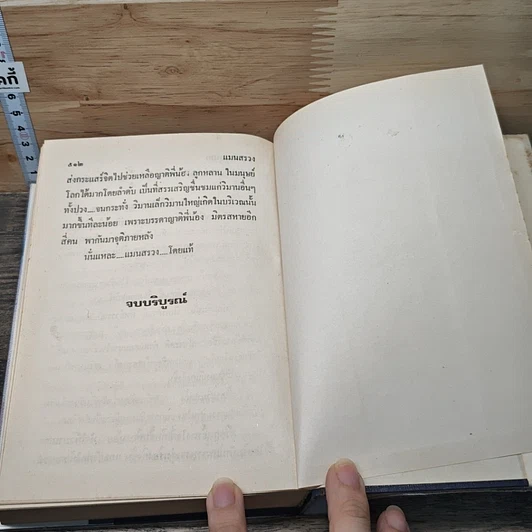 ๕๑๒ แมนสรวง
ส่งกระแสร์จิตไปช่วยเหลือญาติพี่น้อง ลูกหลาน ในมนุษย์
โลกได้มากโดยลำดับ เป็นที่สรรเสริญชื่นชมแก่วิมานอื่นๆ
ทั้งปวง...จนกระทั่ง วิมานเล็กวิมานใหญ่เกิดในบริเวณนั้น
มากขึ้นทีละน้อย เพราะบรรดาญาติพี่น้อง มิตรสหายอีก
สี่คน พากันมาจุติภายหลัง
นั่นแหละ...แมนสรวง...โดยแท้
จบบริบูรณ์
6
5
4
3
2
1